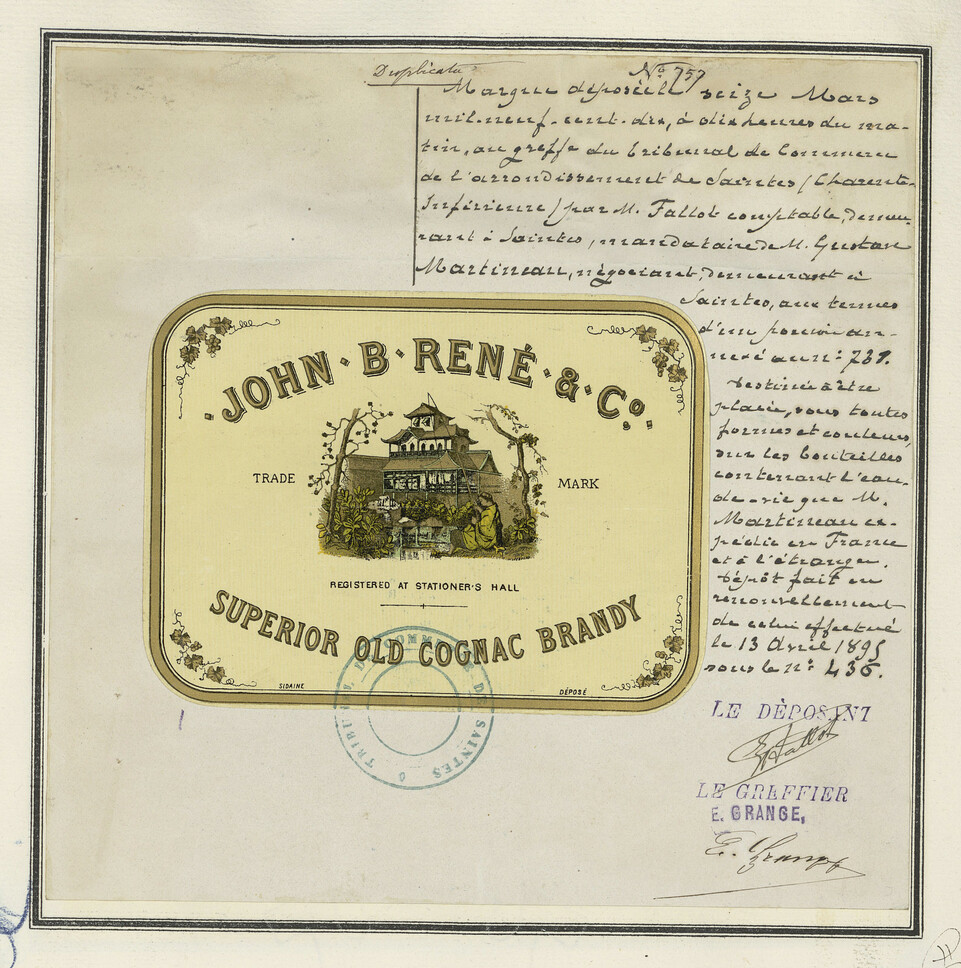 Duplicata
Nº 757
Marque déposée le seize Mars
mil-neuf-cent-dix, à dix heures du ma-
tin, au greffe du tribunal de Commerce
de l'arrondissement de Saintes (Charente-
Inférieure) par M. Fallot comptable, demeu-
rant à Saintes, mandataire de M. Gustave
Martineau, négociant, demeurant à
Saintes, aux termes
d'un pouvoir an-
nexé au nº 737.
Destinée à être
placée, sous toutes
formes et couleurs,
sur les bouteilles
contenant l'eau-
de-vie que M.
Martineau ex-
pédie en France
et à l'étranger.
Dépôt fait en
renouvellement
de celui effectué
le 13 Avril 1895
sous le nº 436.
JOHN · B · RENÉ · & · Cº
TRADE MARK
REGISTERED AT STATIONER'S HALL
SUPERIOR OLD COGNAC BRANDY
SIDAINE
DÉPOSÉ
TRIBUNAL DE COMMERCE DE SAINTES
LE DÉPOSANT
Fallot
LE GREFFIER
E. GRANGE,
E. Grange